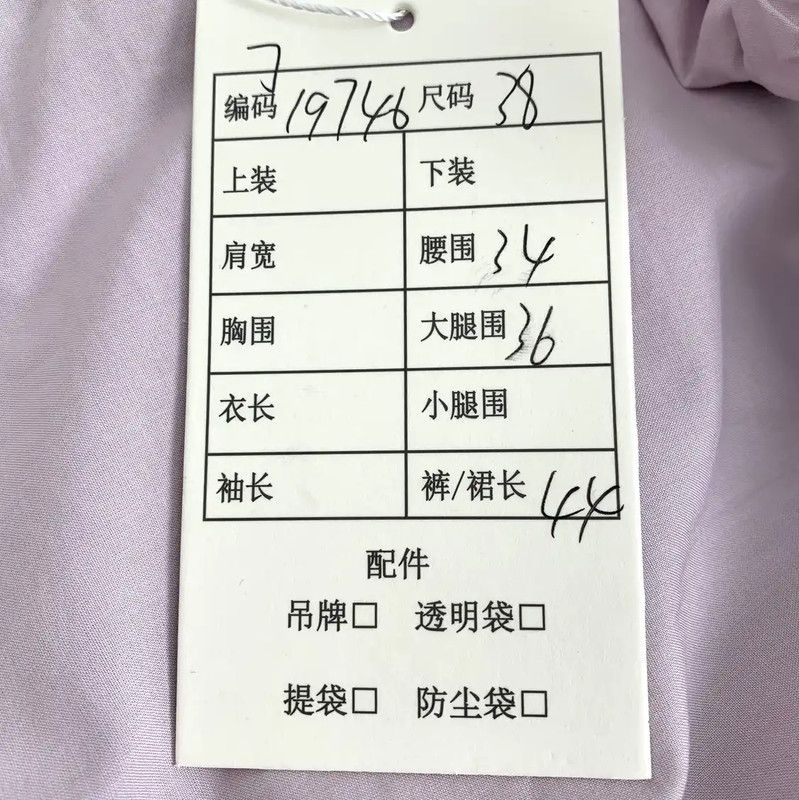 7
编码 19746 尺码 38
上装 下装
肩宽 腰围 34
胸围 大腿围 36
衣长 小腿围
袖长 裤/裙长 44
配件
吊牌□ 透明袋□
提袋□ 防尘袋□